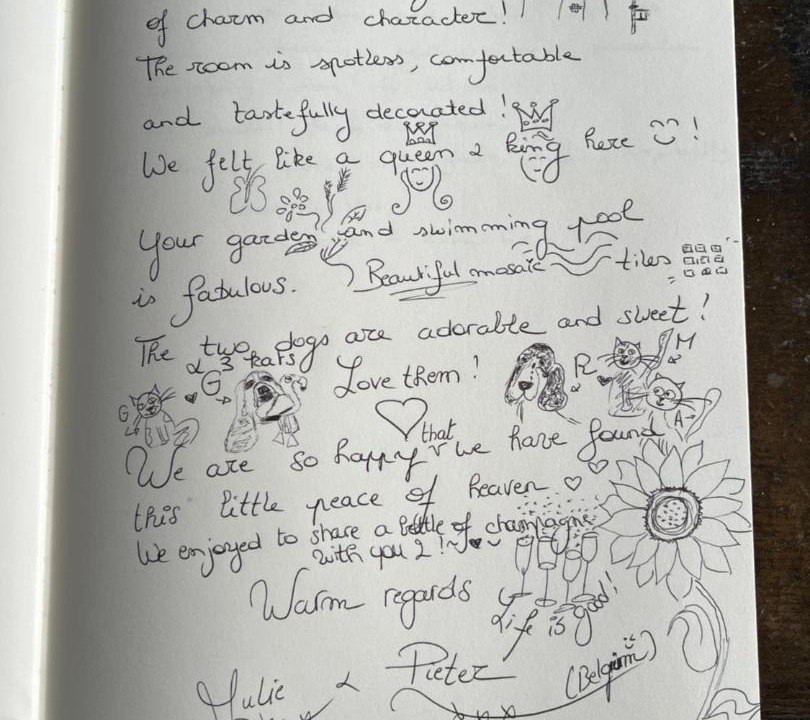 of charm and character!
The room is spotless, comfortable
and tastefully decorated!
We felt like a queen & king here !
Your garden and swimming pool
is fabulous. Beautiful mosaïc tiles
The two dogs are adorable and sweet!
& 3 kats
Love them!
G
G
R
&
M
&
A
We are so happy that we have found
this little peace of heaven
We enjoyed to share a bottle of champagne
with you 2!
Warm regards
Life is good!
Julie & Pieter (Belgium)
xxx